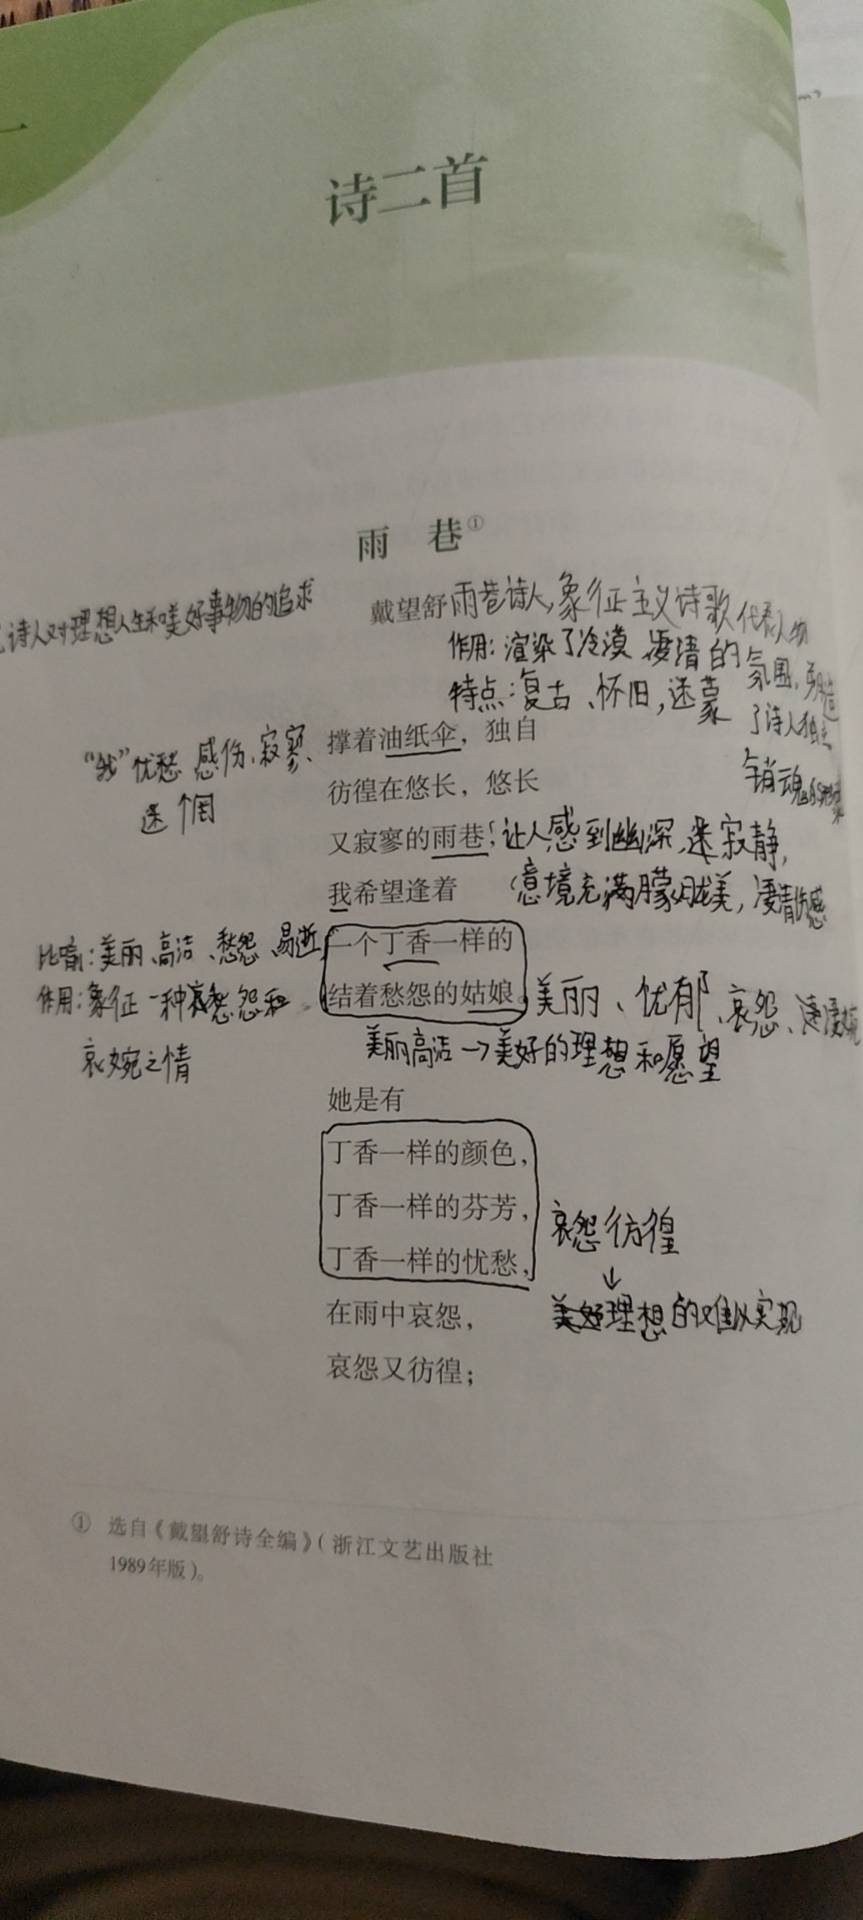 诗二首
雨 巷①
诗人对理想人生和美好事物的追求
戴望舒 雨巷诗人,象征主义诗歌代表人物
作用:渲染了冷漠 凄清的氛围,
了诗人独
销魂的
特点:复古、怀旧,迷蒙
"我"忧愁 感伤、寂寥、
迷惘
撑着油纸伞,独自
彷徨在悠长,悠长
又寂寥的雨巷,让人感到幽深 迷 寂静,
我希望逢着 意境充满朦胧美,凄清伤感
比喻:美丽、高洁、愁怨、易逝,
作用:象征一种哀愁怨和
哀婉之情
一个丁香一样的
结着愁怨的姑娘。美丽、忧郁、哀怨、
美丽高洁→美好的理想和愿望
她是有
丁香一样的颜色,
丁香一样的芬芳,
丁香一样的忧愁,
哀怨彷徨
↓
美好理想的难以实现
在雨中哀怨,
哀怨又彷徨;
① 选自《戴望舒诗全编》(浙江文艺出版社
1989年版)。